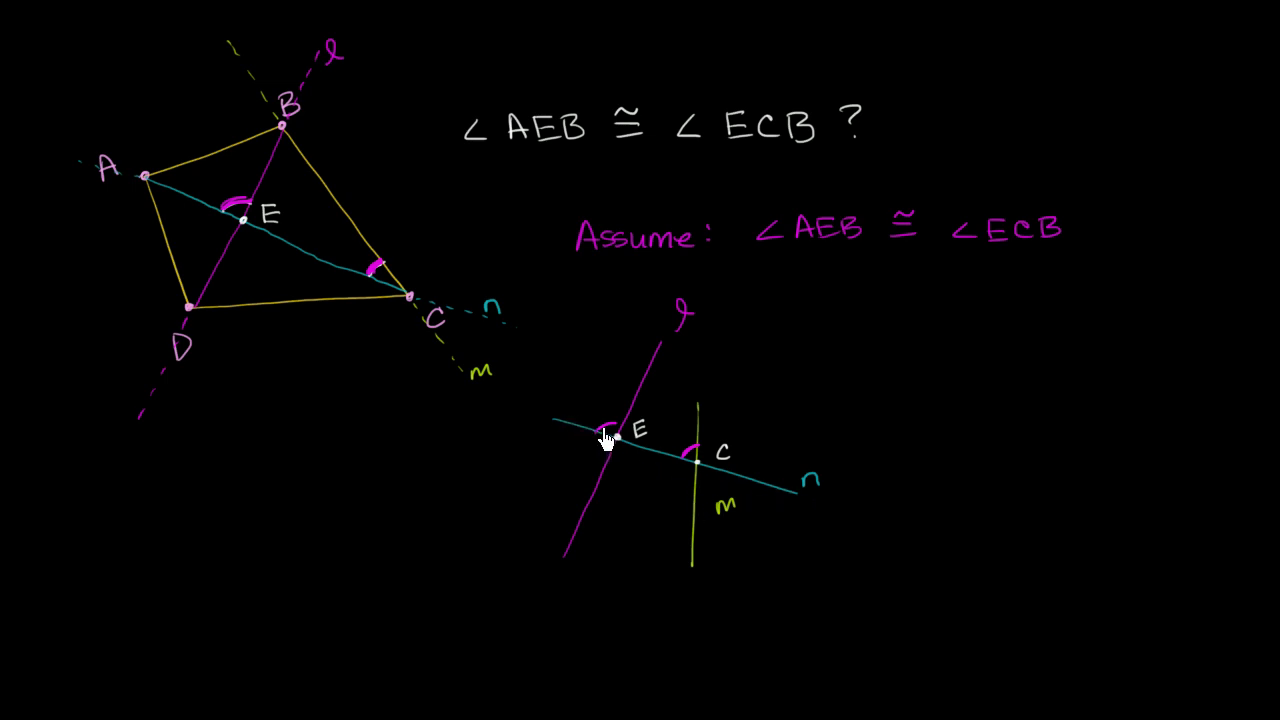 l
B
A
E
n
C
D
m
∠ AEB ≅ ∠ ECB ?
Assume: ∠AEB ≅ ∠ECB
l
E
C
n
m